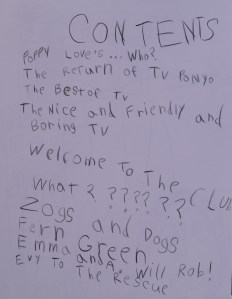 CONTENTS
Poppy Love's... Who?
The Return of TV Ponyo
The Best of TV
The Nice and Friendly and
Boring TV
Welcome To The
What ? ???? ?? CLUB
Zogs and Dogs
Fern Green.
Emma and A. Will Rob!
Evy To The Rescue